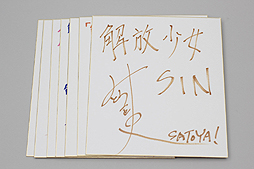 解放少女
SIN
SATOYA!